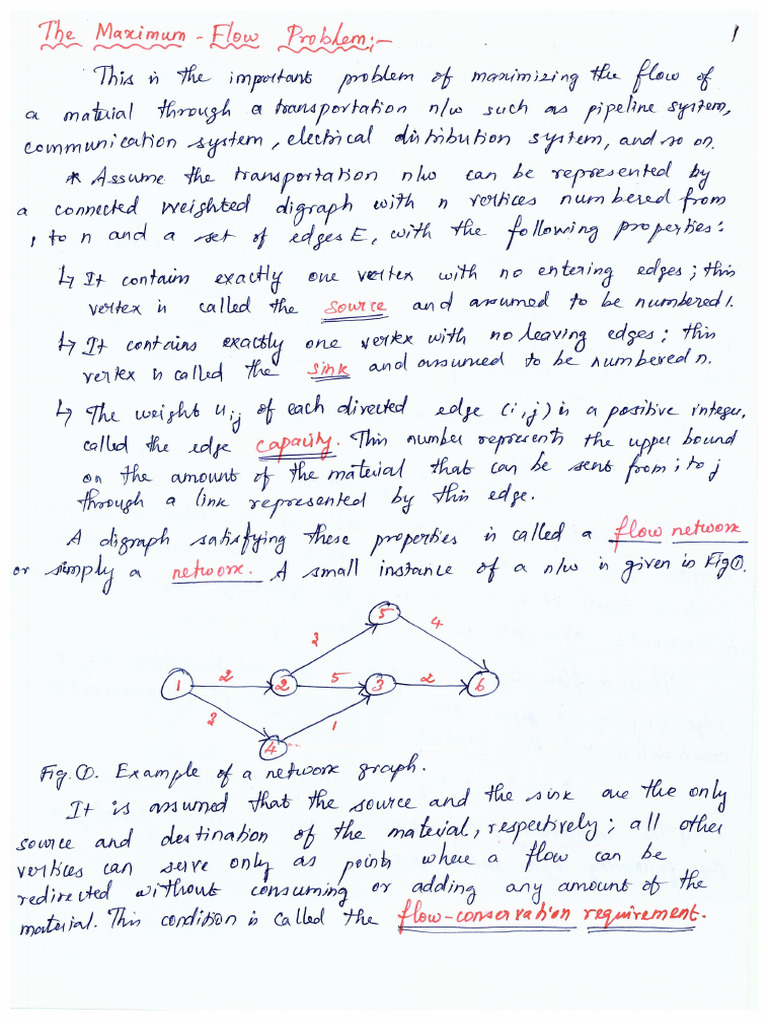 The Maximum-Flow Problem:- 1
This is the important problem of maximizing the flow of
a material through a transportation n/w such as pipeline system,
communication system, electrical distribution system, and so on.
* Assume the transportation n/w can be represented by
a connected weighted digraph with n vertices numbered from
1 to n and a set of edges E, with the following properties:
↳ It contains exactly one vertex with no entering edges; this
vertex is called the source and assumed to be numbered 1.
↳ It contains exactly one vertex with no leaving edges; this
vertex is called the sink and assumed to be numbered n.
↳ The weight uij of each directed edge (i,j) is a positive integer,
called the edge capacity. This number represents the upper bound
on the amount of the material that can be sent from i to j
through a link represented by this edge.
A digraph satisfying these properties is called a flow network
or simply a network. A small instance of a n/w is given in Fig ①.
5
3 4
1 2 2 5 3 2 6
3 1
4
Fig. ①. Example of a network graph.
It is assumed that the source and the sink are the only
source and destination of the material, respectively; all other
vertices can serve only as points where a flow can be
redirected without consuming or adding any amount of the
material. This condition is called the flow-conservation requirement.